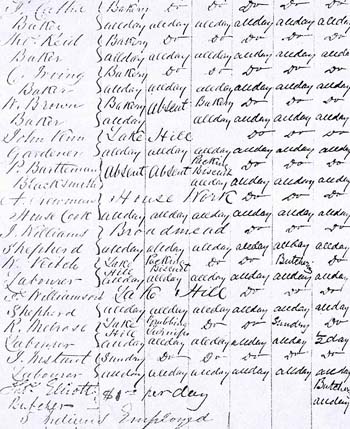 Bakery Do Do Do Do
Baker { allday allday allday allday allday allday
Thos Reid { Bakery Do Do Do Do Do
Baker { allday allday allday allday allday allday
C. Irving { Bakery Do Do Do Do Do
Baker { allday allday allday allday allday allday
W. Brown { Bakery Absent Bakery Do Do Do
Baker { allday allday allday allday allday
John { Lake Hill Do Do Do
Gardener { allday allday allday allday allday allday
P. Bartleman { Absent Absent Packing Biscuit Do Do Do
Blacksmith { allday allday allday allday
House Work Do Do
House Cook { allday allday allday allday allday allday
J. Williams { Broadmead Do Do Do
Shepherd { allday allday allday allday allday allday
W. Veitch { Lake Hill Packing Biscuit Do Do Butcher Do
Labourer { allday allday allday allday allday allday
Williamson { Lake Hill Do Do Do
Shepherd { allday allday allday allday allday allday
R. Melrose { Lake Hill Grubbing Do Do Sunday Do
Labourer { allday allday allday allday allday ½ day
J. Westnut { Sunday Do Do Do Do Do
Labourer { allday allday allday allday allday allday
Elliott { $1 per day Butcher
Butcher allday
5 Indians Employed